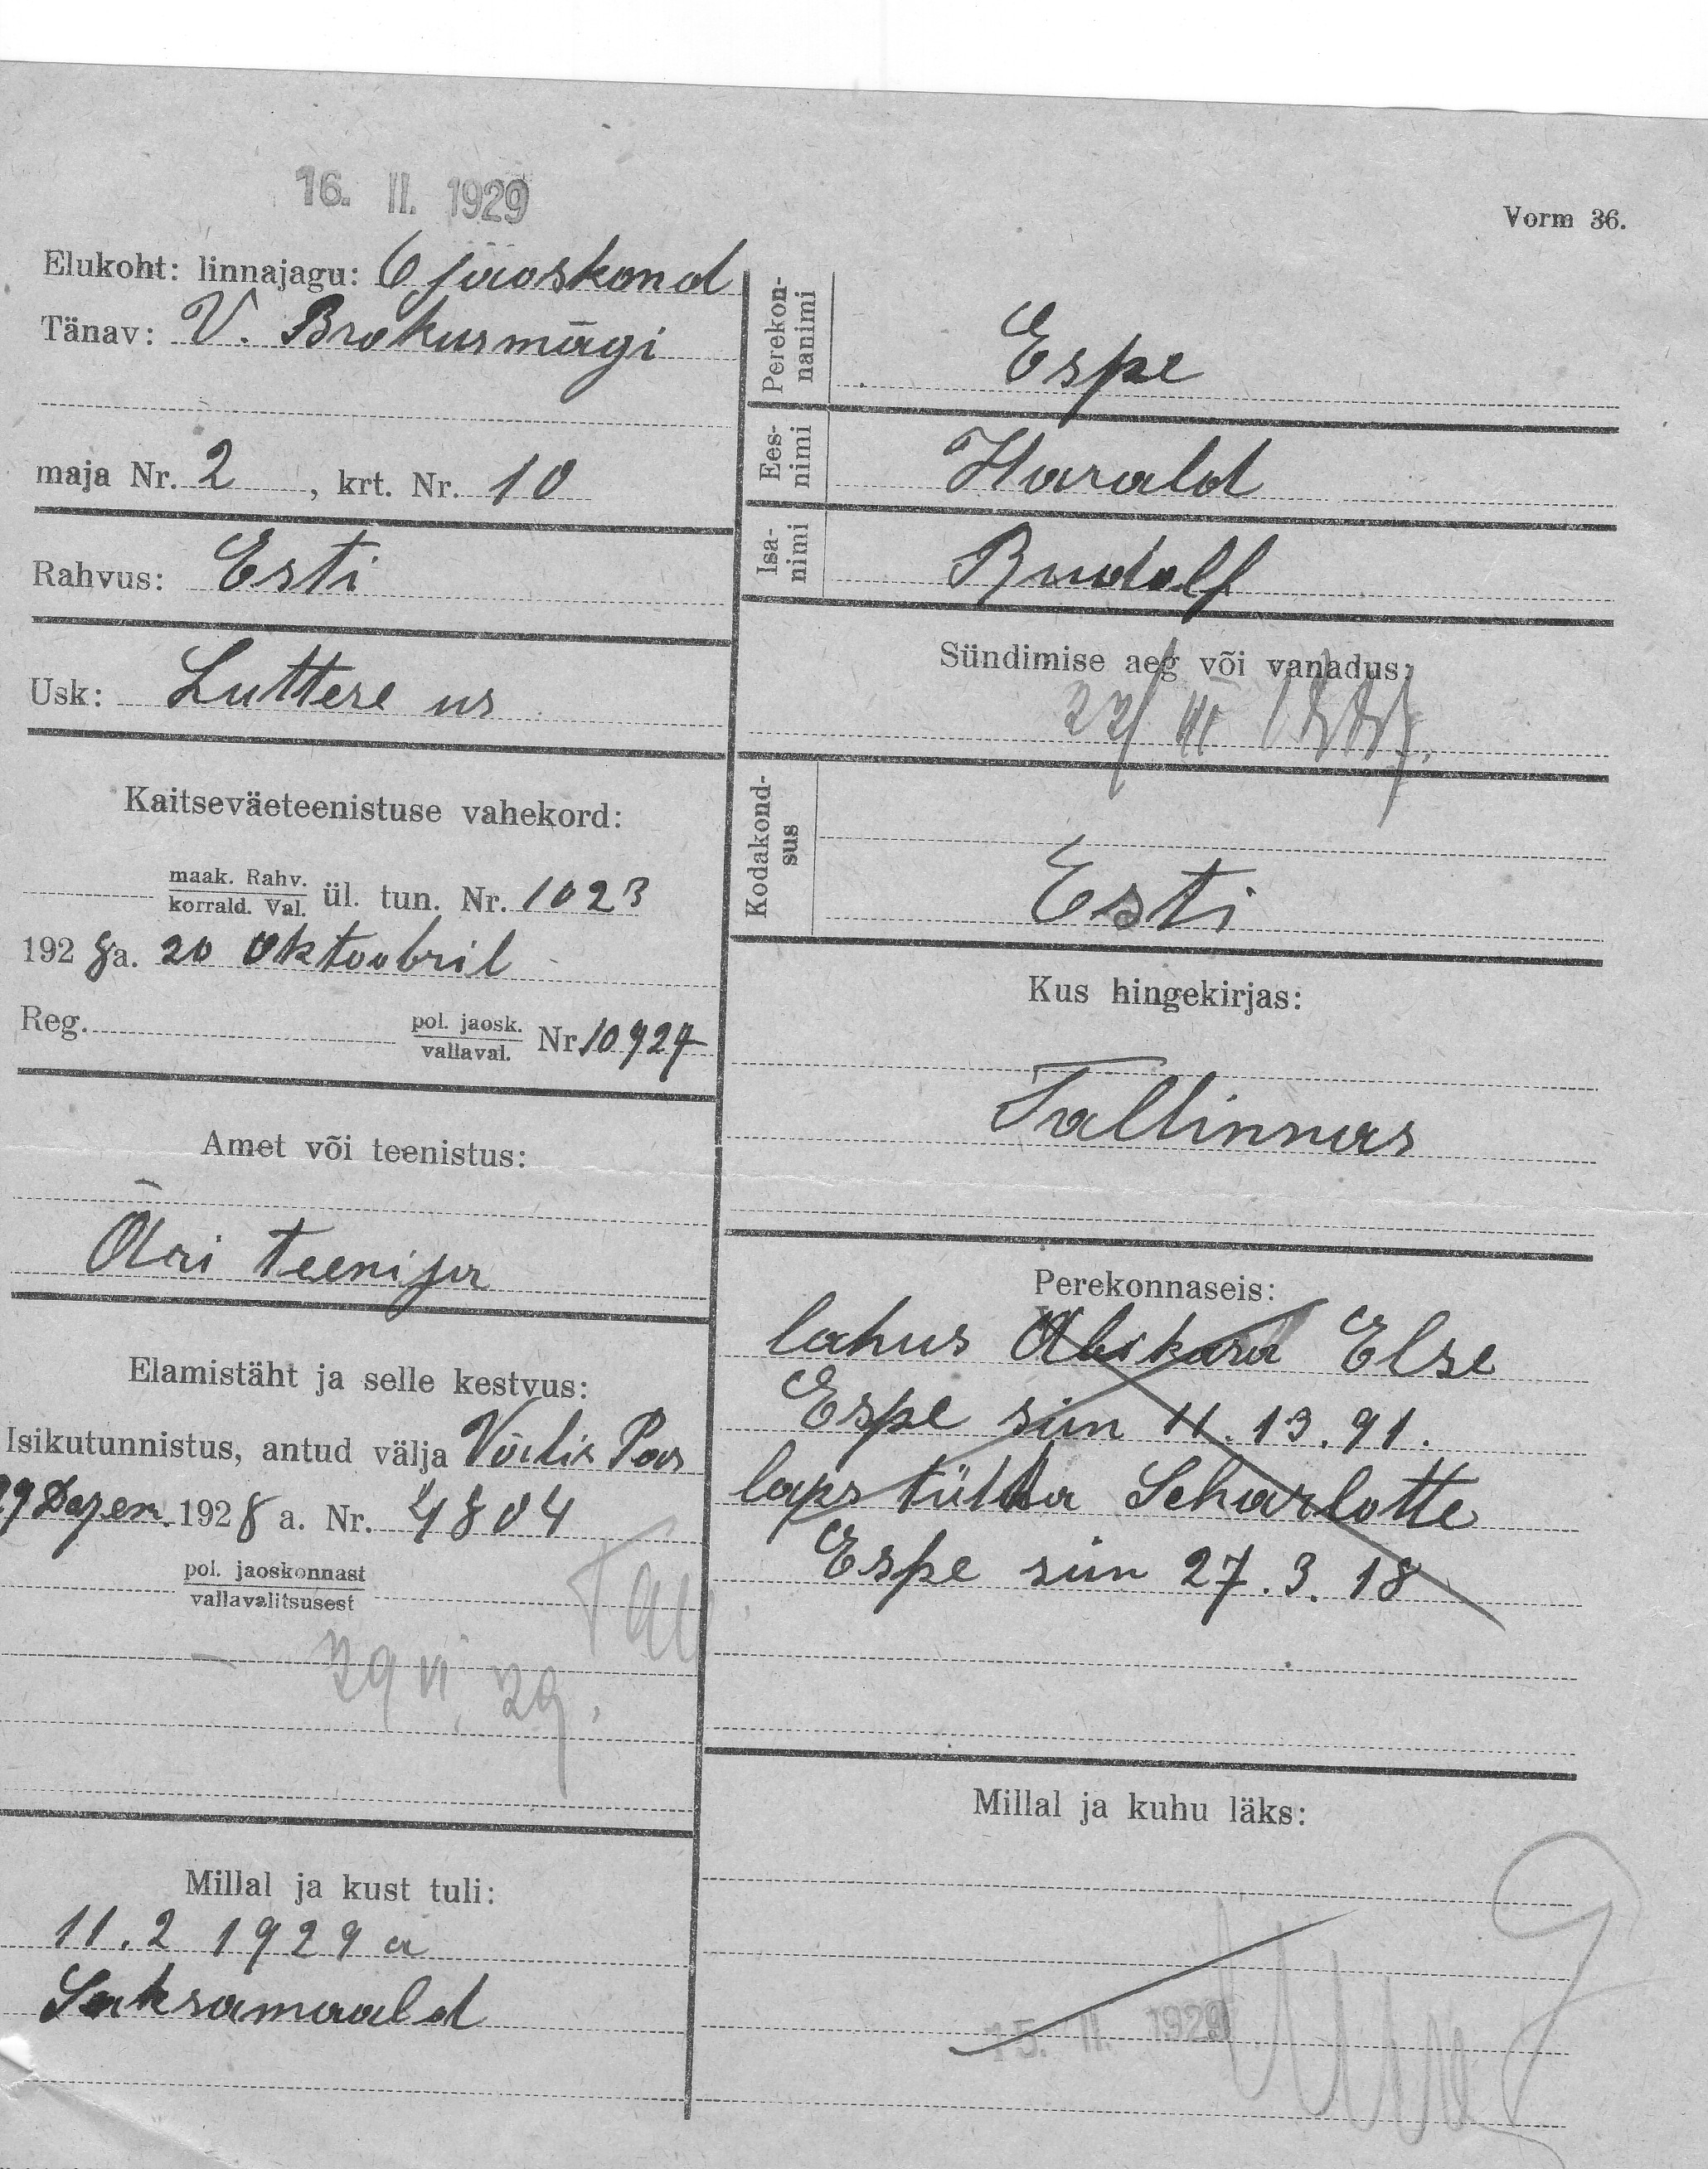 16. II. 1929
Vorm 36.
Elukoht: linnajagu: 6 jaoskond
Tänav: V. Brokusmägi
maja Nr. 2, krt. Nr. 10
Rahvus: Esti
Usk: Luttere us
Kaitseväeteenistuse vahekord:
maak. Rahv.
korrald. Val. ül. tun. Nr. 1023
1928 a. 20 Oktoobril
Reg. pol. jaosk.
vallaval. Nr 10927
Amet või teenistus:
Äri teenija
Elamistäht ja selle kestvus:
Isikutunnistus, antud välja Välis Pas
29 Dezem. 1928 a. Nr. 4804
pol. jaoskonnast
vallavalitsusest
29 VI. 29.
Millal ja kust tuli:
11.2 1929 a
Saksamaald
Perekon-
nanimi
Espe
Ees-
nimi
Harald
Isa-
nimi
Rudolf
Sündimise aeg või vanadus:
Kodakond-
sus
Esti
Kus hingekirjas:
Tallinnas
Perekonnaseis:
lahus Abikasa Else
Espe sün 11.13.91.
laps tüttar Scharlotte
Espe sün 27.3.18
Millal ja kuhu läks:
15. II. 1929